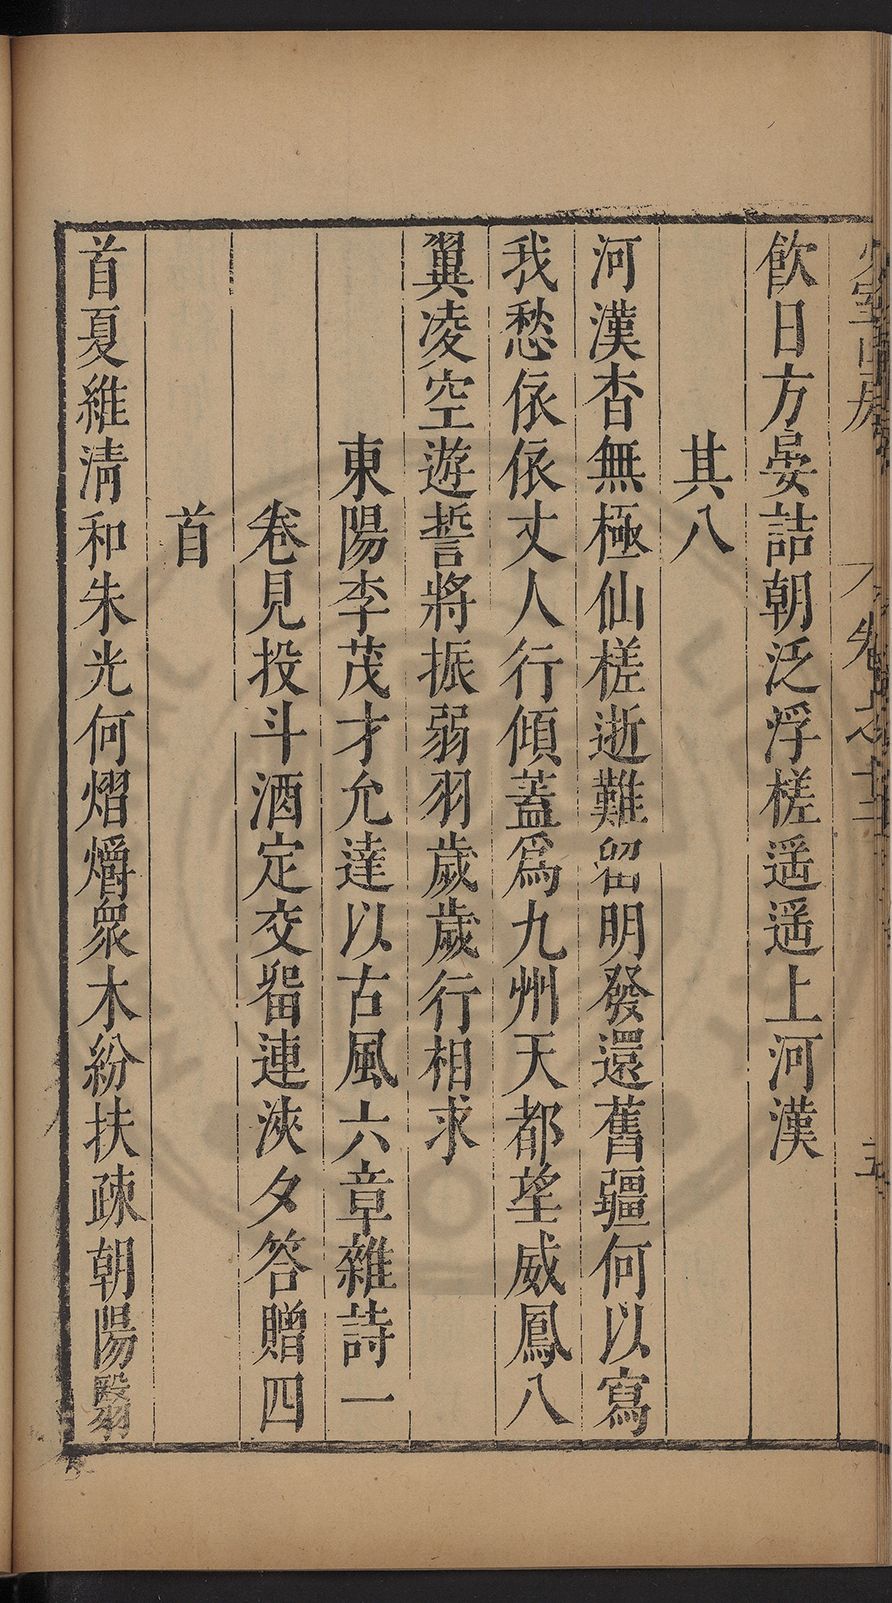 少室山房
卷之十二
五
飲日方晏詰朝泛浮槎遥遥上河漢
其八
河漢杳無極仙槎逝難留明發還舊疆何以寫
我愁依依丈人行傾蓋爲九州天都望威鳳八
翼凌空遊誓將振弱羽歲歲行相求
東陽李茂才允達以古風六章雜詩一
卷見投斗酒定交留連浹夕答贈四
首
首夏維清和朱光何熠爚衆木紛扶疎朝陽翳